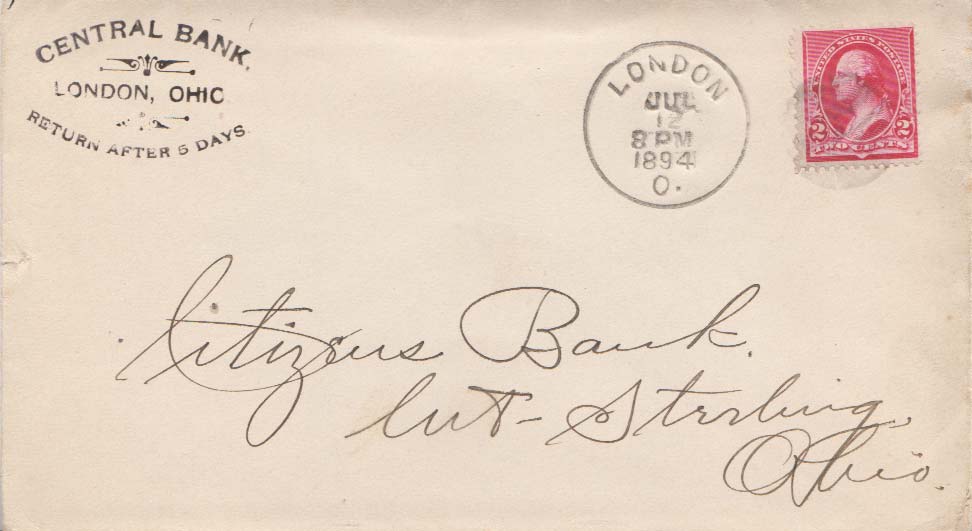 CENTRAL BANK.
LONDON, OHIO
RETURN AFTER 5 DAYS.
LONDON
JUL
12
8 PM
1894
O.
UNITED STATES POSTAGE
2 2
TWO CENTS
Citizens Bank.
Mt- Sterling,
Ohio.